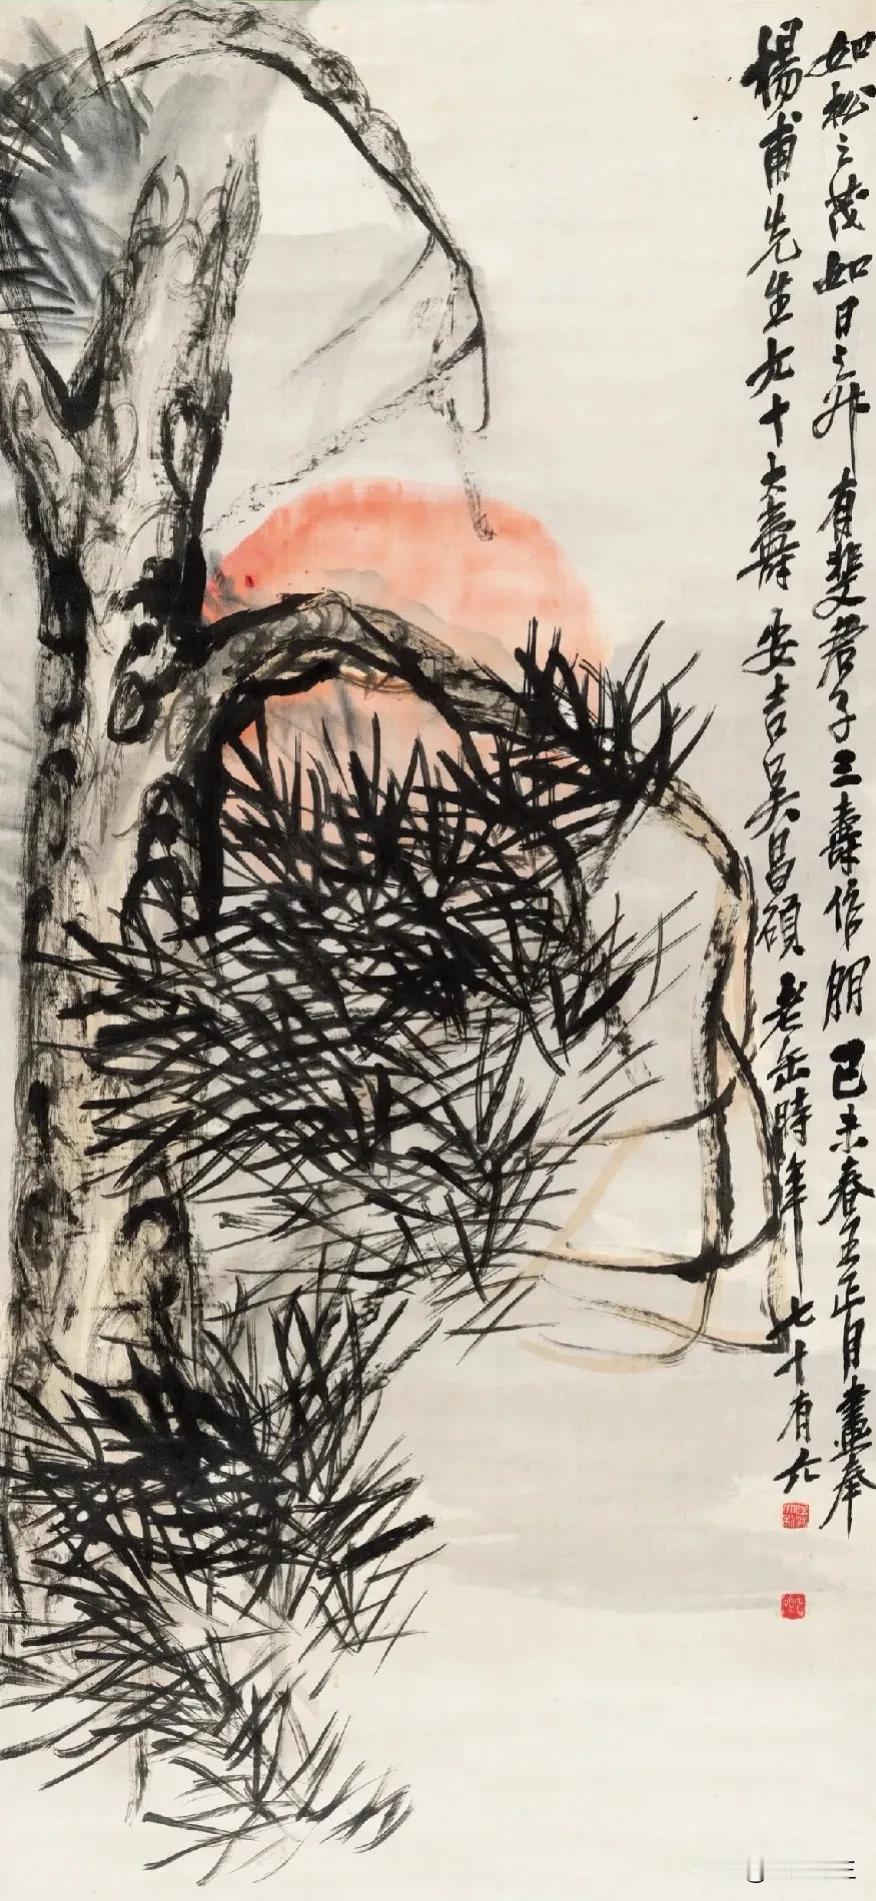 如松之茂如日之升有斐君子三壽作朋己未春王正月畫奉
楊甫先生九十大壽安吉吳昌碩老缶時年七十有六